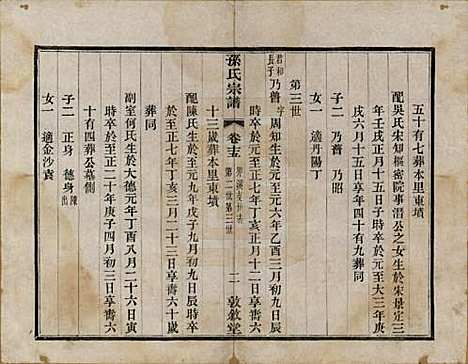 五十有七葬本里東墳
配吳氏宋知樞密院事潛公之女生於宋景定三
年壬戌十五日子時卒於元至大三年庚
戌六月十五日享年四十有九葬同
子二 乃普 乃昭
女一 適丹陽丁
第三世
若和長子 乃普 字周知生於元至元六年乙酉三月初九日辰
時卒於元至正七年丁亥正月十二日享壽六
孫氏宗譜 卷十五 第二世第三世 二 敦敘堂
十三歲葬本里東墳
配陳氏生於元至元年戊子九月初九日辰時卒
於元至正七年丁亥三月二十三日享壽六十歲
葬同
副室何氏生於大德元年丁酉八月二十六日寅
時卒於至正二十年庚子四月初三日享壽六
十有四葬公墓側
子二 正身 德身 陳出
女一 適金沙袁